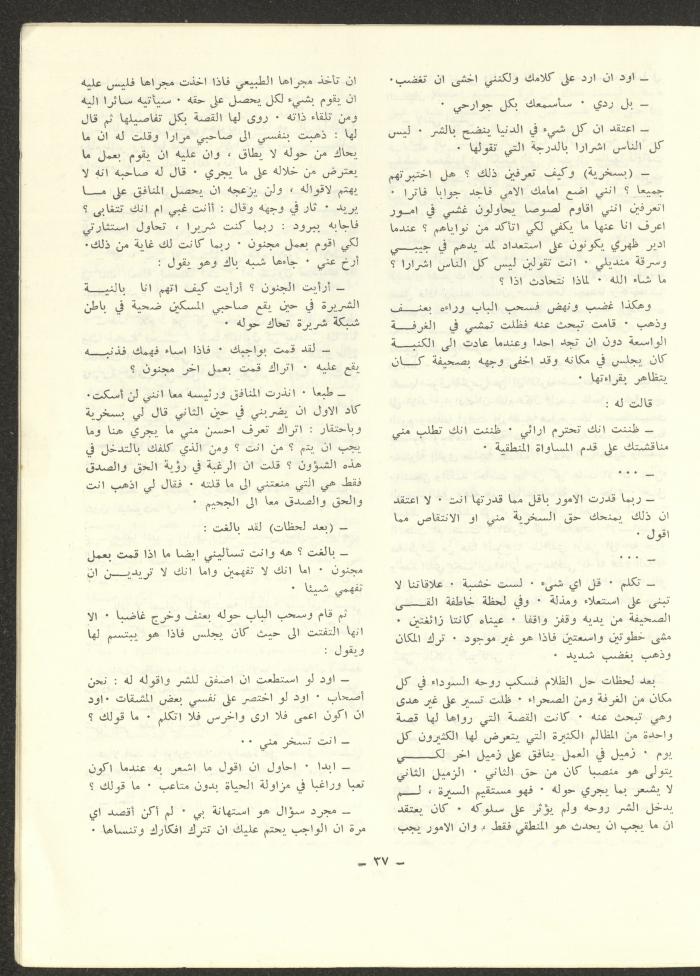 ـ اود ان ارد على كلامك ولكنني اخشى ان تغضب.
ـ بل ردي . سأسمعك بكل جوارحي .
ـ اعتقد ان كل شيء في الدنيا ينضح بالشر . ليس
كل الناس اشرارا بالدرجة التي تقولها .
ـ (بسخرية) وكيف تعرفين ذلك ؟ هل اختبرتهم
جميعا ؟ انني اضع امامك الامي فاجد جوابا فاترا .
اتعرفين انني اقاوم لصوصا يحاولون غشي في امور
اعرف انا عنها ما يكفي لكي اتأكد من نواياهم ؟ عندما
ادير ظهري يكونون على استعداد لمد يدهم في جيبي
وسرقة منديلي . انت تقولين ليس كل الناس اشرارا ؟
ما شاء الله . لماذا نتحادث اذا ؟
وهكذا غضب ونهض فسحب الباب وراءه بعنف
وذهب . قامت تبحث عنه فظلت تمشي في الغرفة
الواسعة دون ان تجد احدا وعندما عادت الى الكنبة
كان يجلس في مكانه وقد اخفى وجهه بصحيفة كان
يتظاهر بقراءتها .
قالت له :
ـ ظننت انك تحترم ارائي . ظننت انك تطلب مني
مناقشتك على قدم المساواة المنطقية .
ـ ...
ـ ربما قدرت الامور باقل مما قدرتها انت . لا اعتقد
ان ذلك يمنحك حق السخرية مني او الانتقاص مما
اقول .
ـ ...
ـ تكلم . قل اي شيء . لست خشبة . علاقاتنا لا
تبنى على استعلاء ومذلة . وفي لحظة خاطفة القى
الصحيفة من يديه وقفز واقفا . عيناه كانتا زائغتين .
مشى خطوتين واسعتين فاذا هو غير موجود . ترك المكان
وذهب بغضب شديد .
بعد لحظات حل الظلام فسكب روحه السوداء في كل
مكان من الغرفة ومن الصحراء . ظلت تسير على غير هدى
وهي تبحث عنه . كانت القصة التي رواها لها قصة
واحدة من المظالم الكثيرة التي يتعرض لها الكثيرون كل
يوم . زميل في العمل ينافق على زميل اخر لكي
يتولى هو منصبا كان من حق الثاني . الزميل الثاني
لا يشعر بما يجري حوله . فهو مستقيم السيرة ، لم
يدخل الشر روحه ولم يؤثر على سلوكه . كان يعتقد
ان ما يجب ان يحدث هو المنطقي فقط ، وان الامور يجب
ان تأخذ مجراها الطبيعي فاذا اخذت مجراها فليس عليه
ان يقوم بشيء لكل يحصل على حقه . سيأتيه سائرا اليه
ومن تلقاء ذاته . روى لها القصة بكل تفاصيلها ثم قال
لها : ذهبت بنفسي الى صاحبي مرارا وقلت له ان ما
يحاك من حوله لا يطاق ، وان عليه ان يقوم بعمل ما
يعترض من خلاله على ما يجري . قال له صاحبه انه لا
يهتم لاقواله ، ولن يزعجه ان يحصل المنافق على ما
يريد . ثار في وجهه وقال : أأنت غبي ام انك تتغابى ؟
فاجابه ببرود : ربما كنت شريرا ، تحاول استثارتي
لكي اقوم بعمل مجنون . ربما كانت لك غاية من ذلك.
أرح عني . جاءها شبه باك وهو يقول :
ـ أرأيت الجنون ؟ أرأيت كيف اتهم انا بالنية
الشريرة في حين يقع صاحبي المسكين ضحية في باطن
شبكة شريرة تحاك حوله .
ـ لقد قمت بواجبك . فاذا اساء فهمك فذنبه
يقع عليه . اتراك قمت بعمل اخر مجنون ؟
ـ طبعا . انذرت المنافق ورئيسه معا انني لن أسكت.
كاد الاول ان يضربني في حين الثاني قال لي بسخرية
وباحتقار : اتراك تعرف احسن مني ما يجري هنا وما
يجب ان يتم ؟ من انت ؟ ومن الذي كلفك بالتدخل في
هذه الشؤون ؟ قلت ان الرغبة في رؤية الحق والصدق
فقط هي التي منعتني الى ما قلته . فقال لي اذهب انت
والحق والصدق معا الى الجحيم .
ـ (بعد لحظات) لقد بالغت :
ـ بالغت ؟ هه وانت تسأليني ايضا ما اذا قمت بعمل
مجنون . اما انك لا تفهمين واما انك لا تريدين ان
تفهمي شيئا .
ثم قام وسحب الباب حوله بعنف وخرج غاضبا . الا
انها التفتت الى حيث كان يجلس فاذا هو يبتسم لها
ويقول :
ـ اود لو استطعت ان اصفق للشر واقوله له : نحن
أصحاب . اود لو اختصر على نفسي بعض المشقات .اود
ان اكون اعمى فلا ارى واخرس فلا اتكلم . ما قولك ؟
ـ انت تسخر مني ..
ـ ابدا . احاول ان اقول ما اشعر به عندما اكون
تعبا وراغبا في مزاولة الحياة بدون متاعب . ما قولك ؟
ـ مجرد سؤال هو استهانة بي . لم أكن أقصد اي
مرة ان الواجب يحتم عليك ان تترك افكارك وتنساها .
ـ ٣٧ ـ